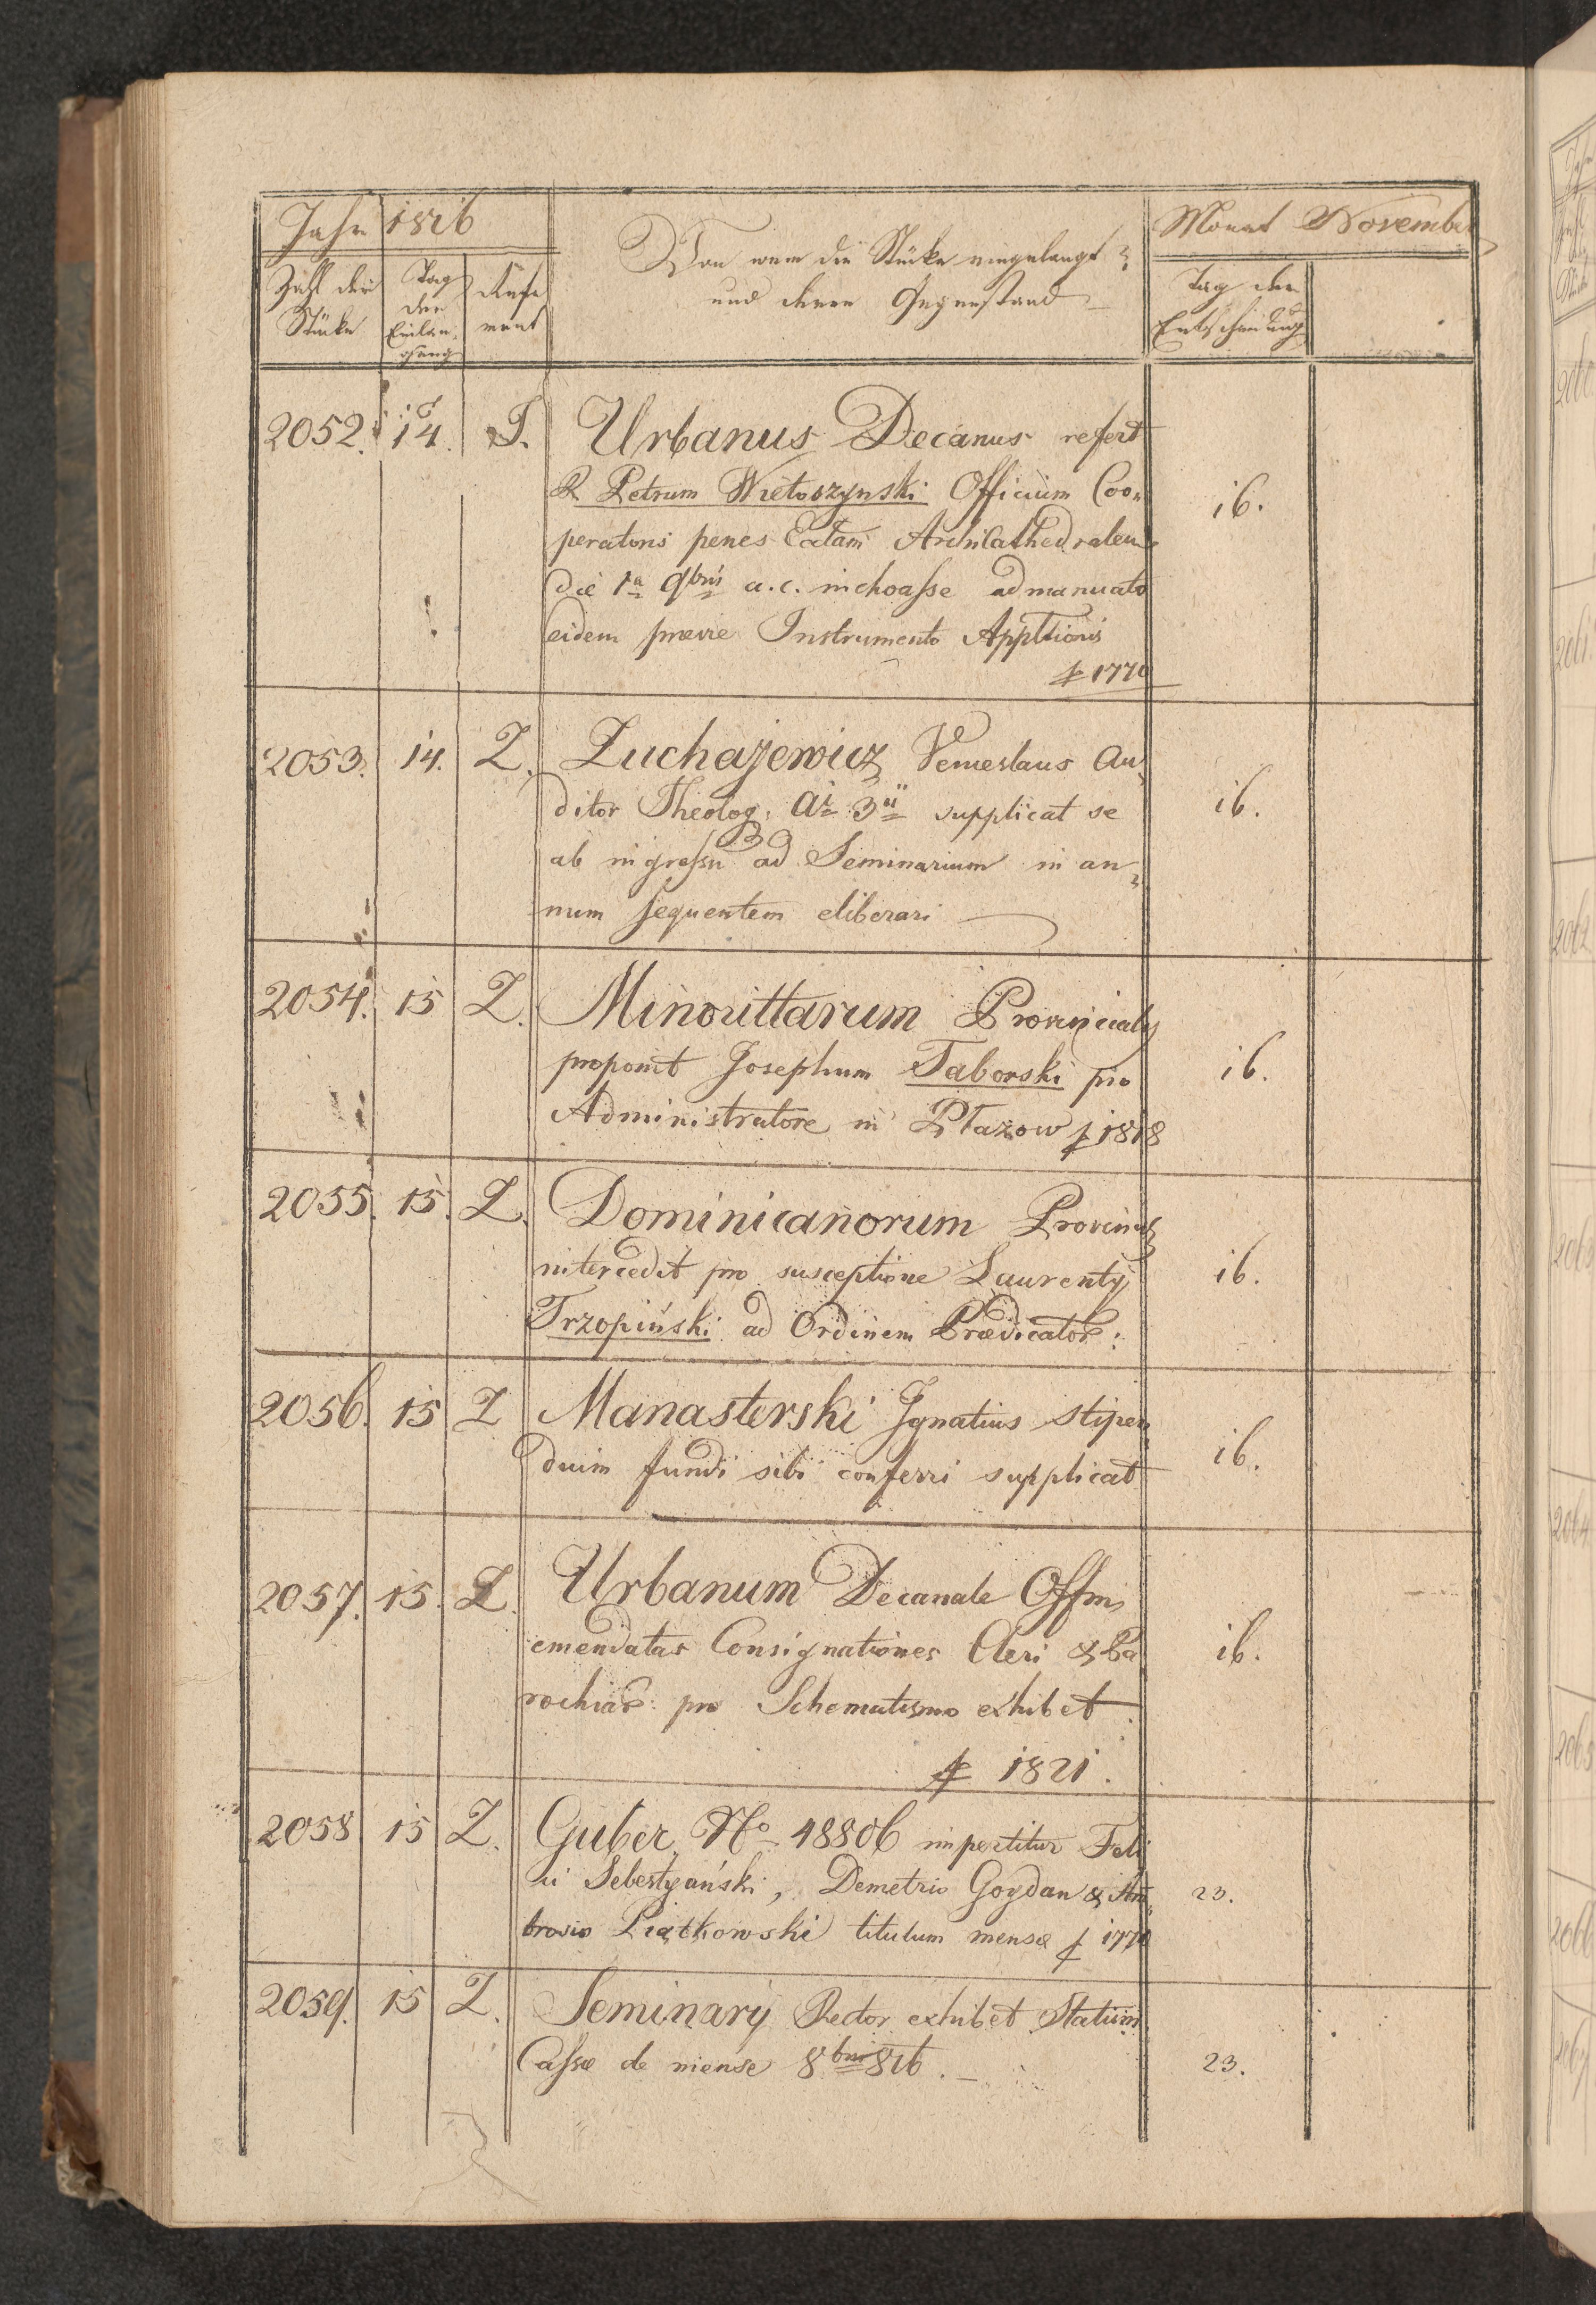 Jahr 1826
Von wem die Stücke eingelangt
und deren Gegenstand
Monat November
Zahl der
Stücke
Tag
der
Einlan-
gung
Refe
rent
Tag der
Entscheidung
2052. 14. J. Urbanus Decanus refert
R. Petrum Wietoszynski Officium Coo-
peratoris penes Ecclam Archicathedralem
die 1a 9bris a.c. inchoasse admanuato
eidem praevie Instrumento Appltionis
f 1770
16.
2053. 14. Z. Zuchajewicz Venceslaus Au-
ditor Theolog. ai 3ii supplicat se
ab ingressu ad Seminarium in an-
num sequentem eliberari
16.
2054. 15 Z. Minorittarum Provincialis
proponit Josephum Taborski pro
Administratore in Płazow f 1818
16.
2055. 15. Z. Dominicanorum Provincs
intercedit pro susceptione Laurentij
Trzopiński ad Ordinem Praedicator:
16.
2056. 15 Z Manasterski Ignatius stipen
dium fundi sibi conferri supplicat
16.
2057. 15. Z. Urbanum Decanale Offm
emendatas Consignationes Cleri & Pa
rochiar: pro Schematismo exhibet
f 1821.
16.
2058 15 Z. Guber. No 48806 impertitur Feli
ci Sebestyański, Demetrio Goydan & Am-
brosio Piątkowski titulum mensae f 1770
23.
2059. 15 Z. Seminarij Rector exhibet Statum
Cassae de mense 8bri 826.
23.